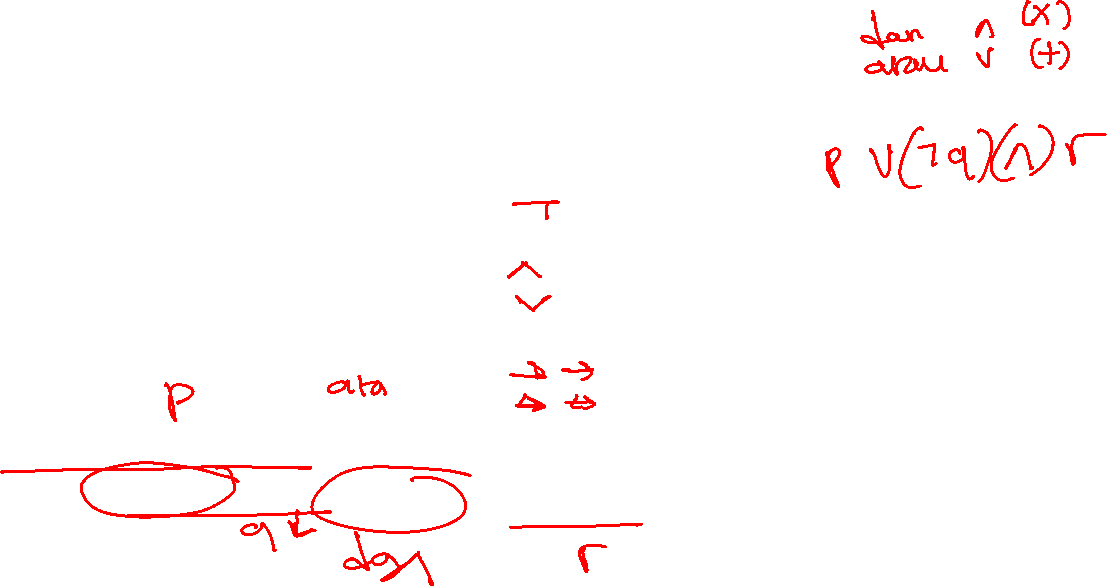 dan ∧ (×)
atau ∨ (+)
p ∨(¬q)(∧) r
¬
∧
∨
→ →
p
q
dan
r